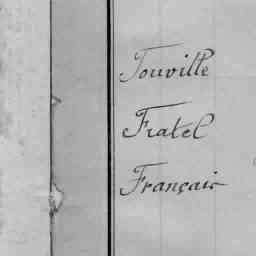 Touville
Fratel
Français